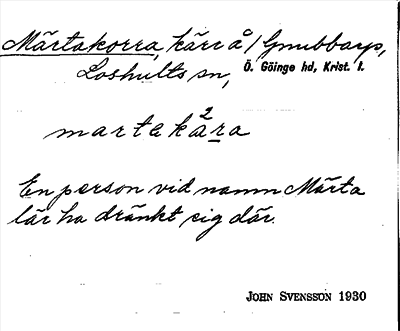 Märtakorra, kärr å / Gnubbarp,
Loshults sn, Ö. Göinge hd, Krist. l.
2
martakåra
En person vid namn Märta
lär ha dränkt sig där.
JOHN SVENSSON 1930